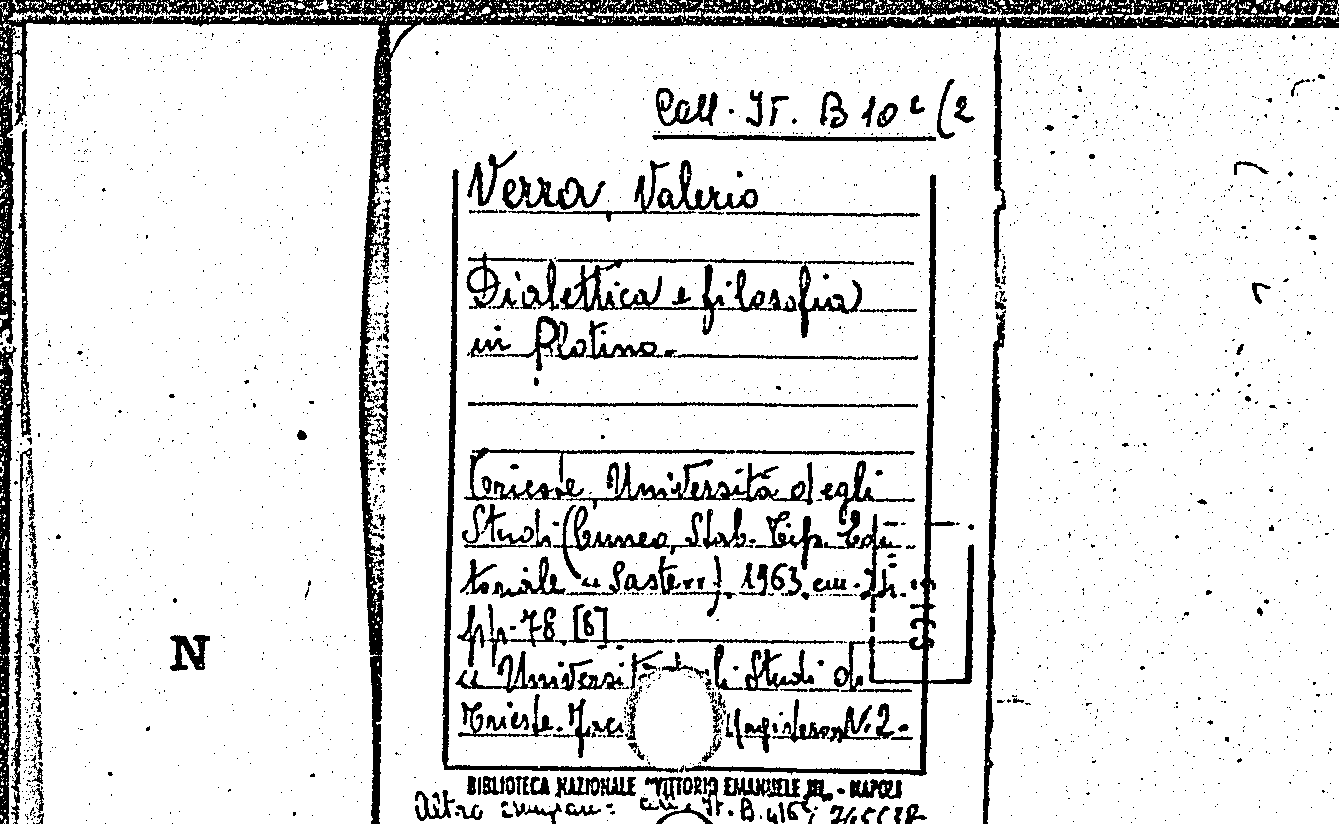 Coll. It. B 10 c (2
Verra, Valerio
Dialettica e filosofia
in Plotino.
Trieste, Università degli
Studi (Cuneo, Stab. Tip. Edi
toriale "Saste"). 1963. cm. 24.
pp. 78. [6]
"Universi li Studi di
Trieste. Magistero N. 2.
N
BIBLIOTECA NAZIONALE "VITTORIO EMANUELE III" - NAPOLI
Altro It. B.